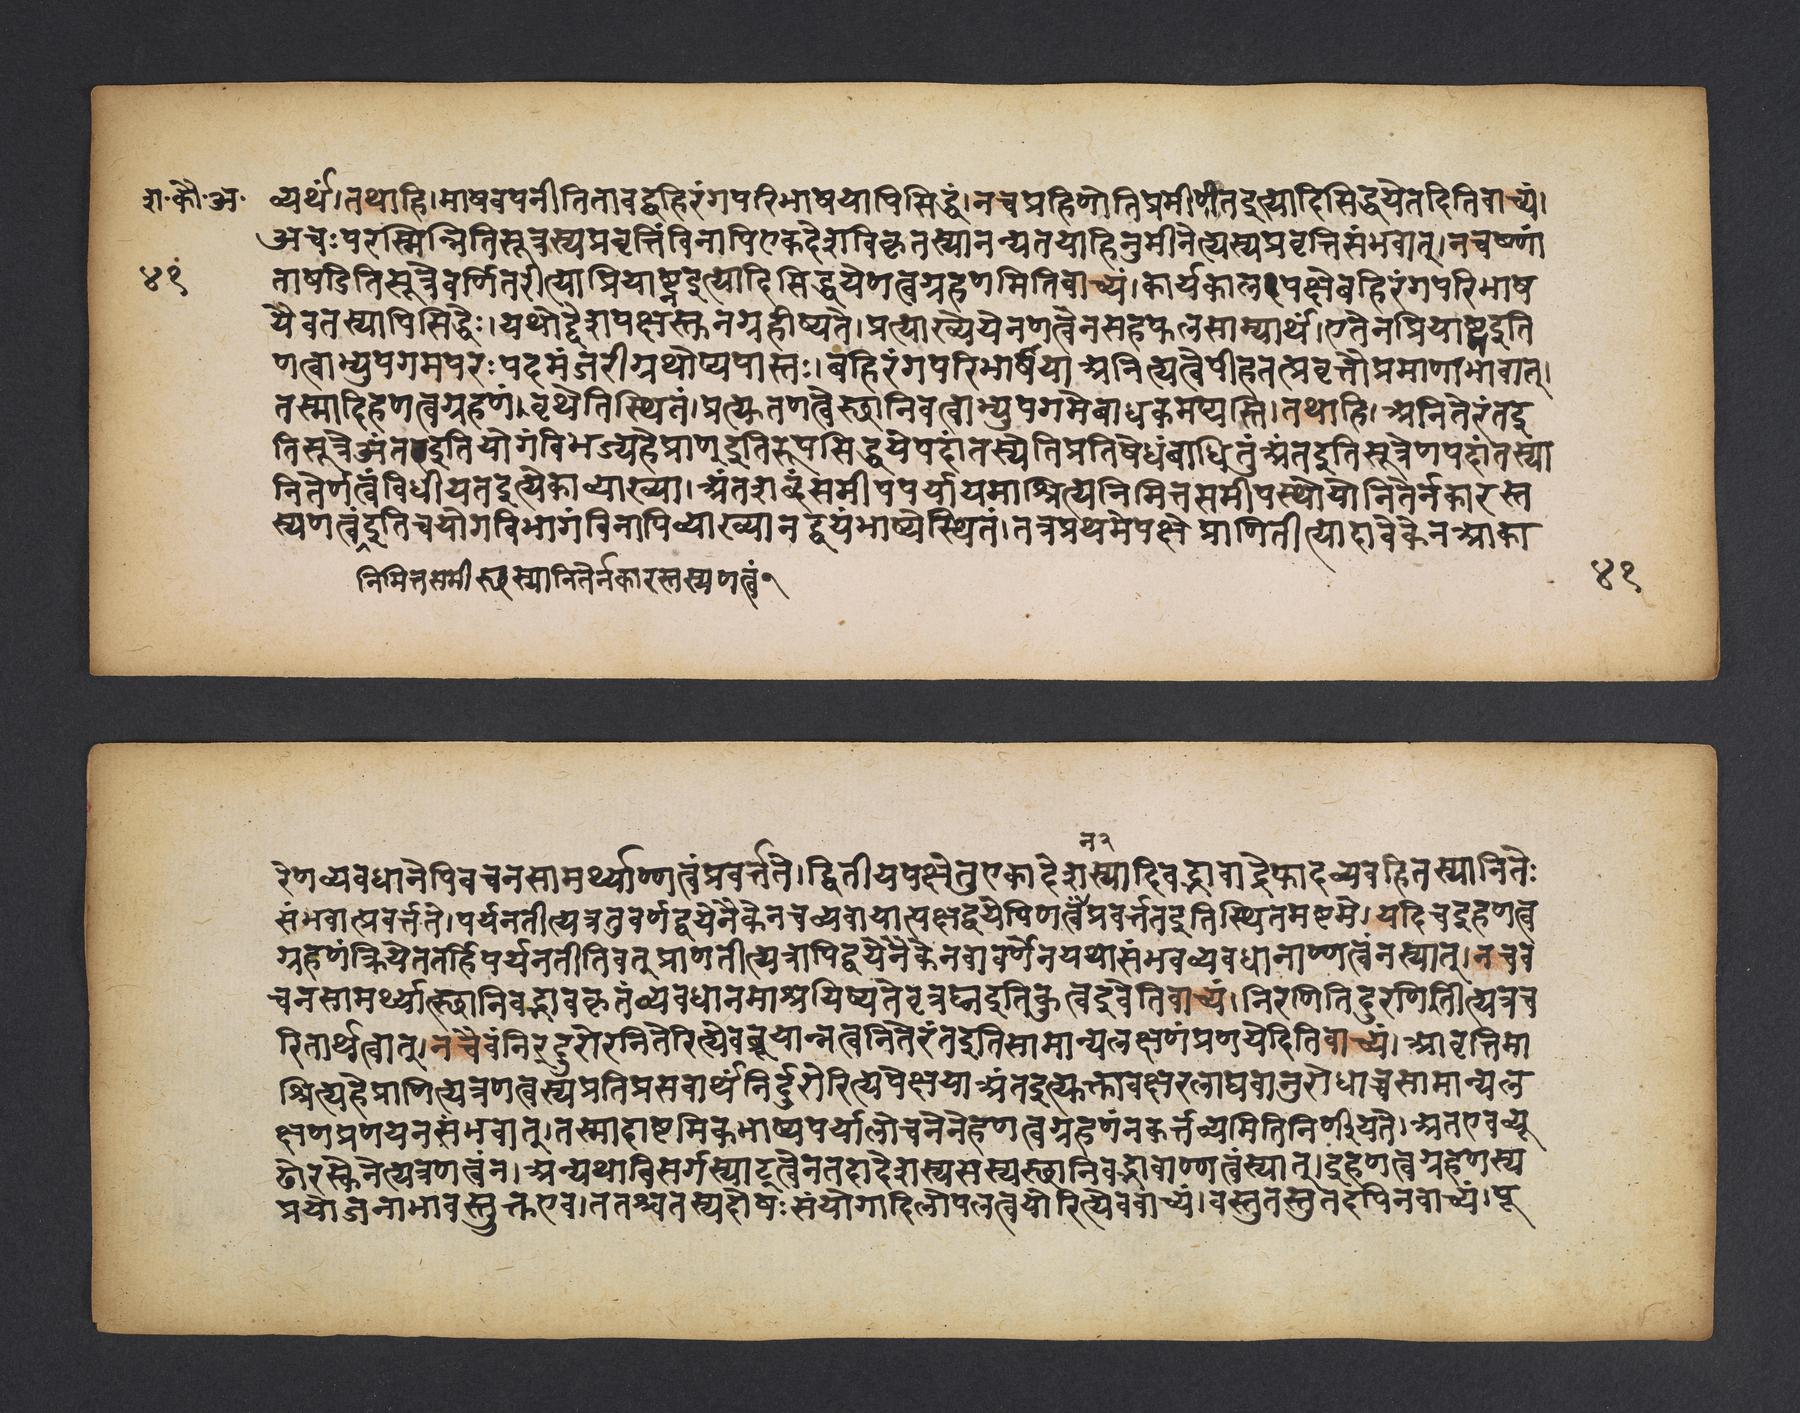 श·कौ·अ·
व्यर्थं।तथाहि।माषवपनीतितावद्बहिरंगपरिभाषयापिसिद्धं।नचप्रहिणोतिप्रमीणीतइत्यादिसिद्धयेतदितिवाच्यं।
अचःपरस्मिन्नितिसूत्रस्यप्रवृत्तिंविनापिएकदेशविकृतस्यानन्यतयाहिनुमीनेत्यस्यप्रवृत्तिसंभवात्।नचष्णां
४१
ताषडितिसूत्रेवर्णितरीत्याप्रियाष्ट्नइत्यादिसिद्धयेणत्वग्रहणमितिवाच्यं।कार्यकालपक्षेबहिरंगपरिभाष
यैवतस्यापिसिद्धेः।यथोद्देशपक्षस्तनग्रहीष्यते।प्रत्याख्येयेनणत्वेनसहफलसाम्यार्थं।एतेनप्रियाष्ट्णइति
णत्वाभ्युपगमपरःपदमंजरीग्रथोप्यपास्तः।बहिरंगपरिभाषया अनित्यत्वेपीहतत्प्रवृत्तौप्रमाणाभावात्।
तस्मादिहणत्वग्रहणं।वृथेतिस्थितं।प्रत्क्तणत्वेस्छानिवत्वाभ्युपगमेबाधकमप्यस्ति।तथाहि।अनितेरंतइ
तिसूत्रेअंतइतियोगंविभज्यहेप्राण्इतिरूपसिद्धयेपदांतस्येतिप्रतिषेधंबाधितुंअंतइतिसूत्रेणपदांतस्या
नितेर्णत्वंविधीयतइत्येकाव्याख्या।अंतशब्दंसमीपपर्यायमाश्रित्यनिमित्तसमीपस्थोयोनितेर्नकारस्त
स्यणत्वंइतिचयोगविभागंविनापिव्याख्यानद्वयंभाष्येस्थितं।तत्रप्रथमेपक्षे प्राणितीत्यादावेकेनआका
निमित्तसमीस्छस्यानितेर्नकारस्तस्यणत्वं९
४१
न२
रेणव्यवधानेपिवचनसामर्थ्याण्णत्वंप्रवर्त्तते।द्वितीयपक्षेतुएकादेशस्यादिवद्भावाद्रेफादव्यवहितस्यानितेः
संभवात्प्रवर्त्तते।पर्यनतीत्यत्रतुवर्णद्वयेनैकेनचव्यवायात्पक्षद्वयेपिणत्वंप्रवर्त्ततइतिस्थितमष्टमे।यदिचइहणत्व
ग्रहणंक्रियेततर्हिपर्यनतीतिवत्प्राणतीत्यत्रापिद्वयेनैकेनवावर्णेनयथासंभवव्यवधानाण्णत्वंनस्यात्।नचव
चनसामर्थ्यात्स्छानिवद्भावकृतंव्यवधानमाश्रयिष्यतेवृत्रघ्नइतिकुत्वइवेतिवाच्यं।निरणितिदुरणितीत्यत्रच
रितार्थत्वात्।नचैवंनिर्दुरोरनितेरित्येवब्रूयान्नत्वनितेरंतइतिसामान्यलक्षणंप्रणयेदितिवाच्यं।आवृत्तिमा
श्रित्यहेप्राणित्यत्रणत्वस्यप्रतिप्रसवार्थंनिर्दुरोरित्यपेक्षया अंतइत्युक्तावक्षरलाघवानुरोधाच्चसामान्यल
क्षणप्रणयनसंभवात्।तस्मादाष्टमिकभाष्यपर्यालोचनेनेहणत्वग्रहणंनकर्त्तव्यमितिनिर्णीयते।अतएवव्यू
ढोरस्केनेत्यत्रणत्वंन।अन्यथाविसर्गस्याट्त्वेनतदादेशस्यसस्यस्छानिवद्भावाण्णत्वंस्यात्।इहणत्वग्रहणस्य
प्रयोजनाभावस्तुक्तएव।ततश्चतस्यदोषःसंयोगादिलोपलत्वयोरित्येववाच्यं।वस्तुतस्तुतदपिनवाच्यं।पू